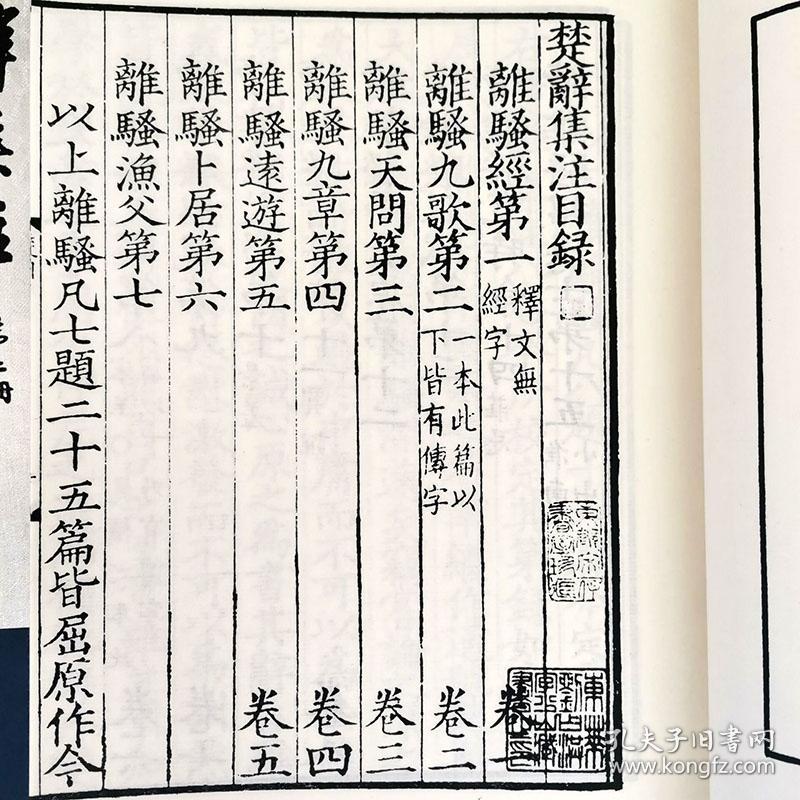 楚辭集注目録
離騷經第一 釋文無經字 卷一
離騷九歌第二 一本此篇以下皆有傳字 卷二
離騷天問第三 卷三
離騷九章第四 卷四
離騷遠遊第五 卷五
離騷卜居第六
離騷漁父第七
以上離騷凡七題二十五篇皆屈原作今
孔夫子旧书网
www.kongfz.com